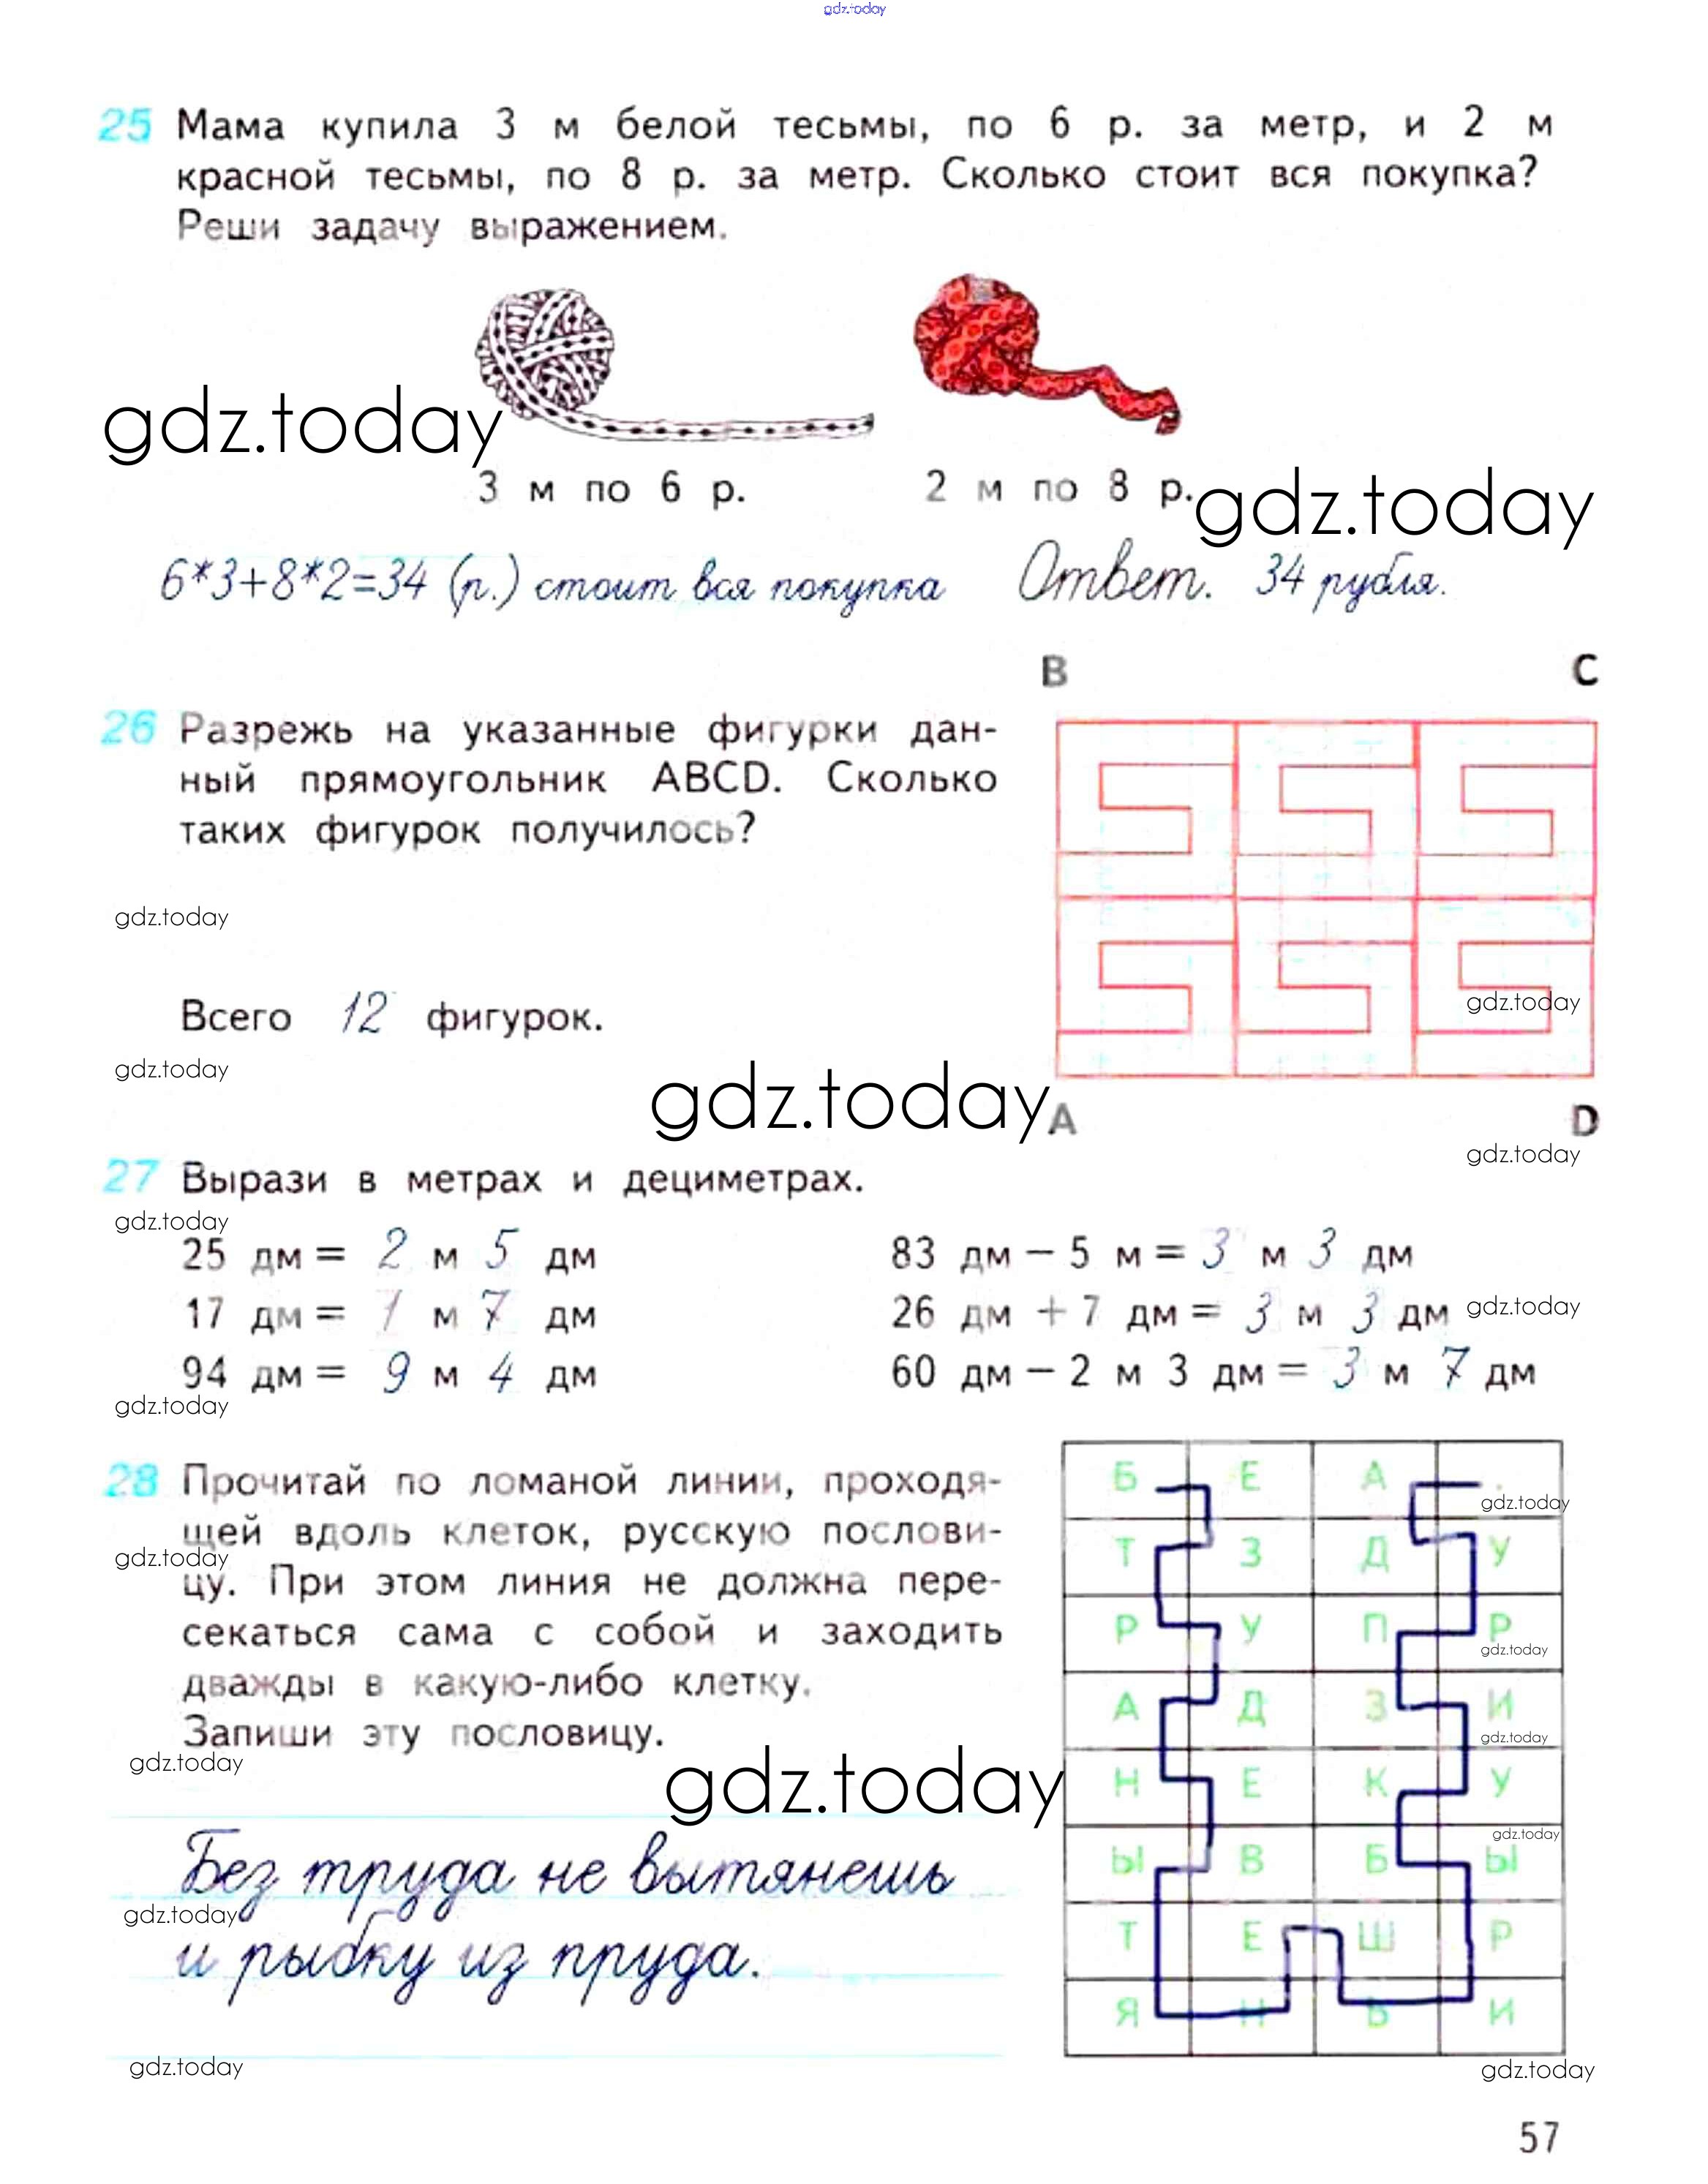 gdz.today
25 Мама купила 3 м белой тесьмы, по 6 р. за метр, и 2 м
красной тесьмы, по 8 р. за метр. Сколько стоит вся покупка?
Реши задачу выражением.
gdz.today
3 м по 6 р. 2 м по 8 р.
gdz.today
6*3+8*2=34 (р.) стоит вся покупка Ответ. 34 рубля.
B C
26 Разрежь на указанные фигурки дан-
ный прямоугольник ABCD. Сколько
таких фигурок получилось?
gdz.today
gdz.today
Всего 12 фигурок.
gdz.today
gdz.today
A D
gdz.today
27 Вырази в метрах и дециметрах.
gdz.today
25 дм = 2 м 5 дм 83 дм − 5 м = 3 м 3 дм
17 дм = 1 м 7 дм 26 дм + 7 дм = 3 м 3 дм gdz.today
94 дм = 9 м 4 дм 60 дм − 2 м 3 дм = 3 м 7 дм
gdz.today
28 Прочитай по ломаной линии, проходя-
щей вдоль клеток, русскую послови-
gdz.today
цу. При этом линия не должна пере-
секаться сама с собой и заходить
дважды в какую-либо клетку.
Запиши эту пословицу.
gdz.today
gdz.today
Без труда не вытянешь
gdz.today
и рыбку из пруда.
gdz.today
Б Е А .
gdz.today
Т З Д У
Р У П Р
gdz.today
А Д З И
gdz.today
Н Е К У
gdz.today
Ы В Б Ы
Т Е Ш Р
Я Н Ь И
gdz.today
57